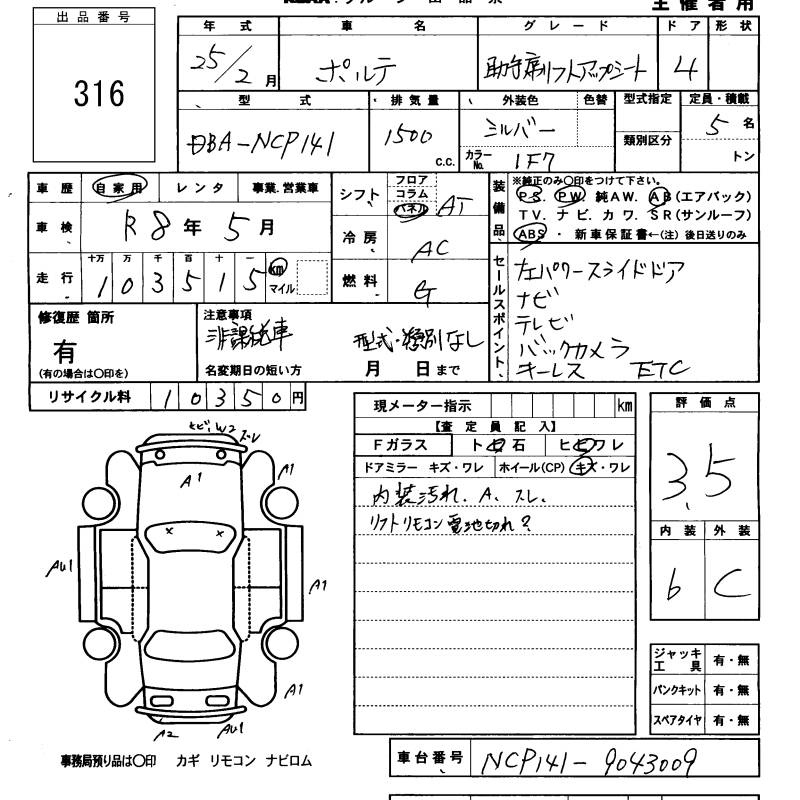 出品番号
316
年式 車名 グレード ドア 形状
25/2月 ポルテ 助手席リフトアップシート 4
型式 排気量 外装色 色替 型式指定 定員・積載
DBA-NCP141 1500 c.c. シルバー 類別区分 5名
カラーNo. 1F7 トン
車歴 自家用 レンタ 事業.営業車
車検 R8年5月
走行 十万 万 千 百 十 一 km
103515 マイル
シフト フロア コラム パネル AT
冷房 AC
燃料 G
装備品
※純正のみ〇印をつけて下さい。
PS. PW. 純AW. AB(エアバック)
TV. ナビ. カワ. SR(サンルーフ)
ABS ・ 新車保証書←(注)後日送りのみ
セールスポイント
左パワースライドドア
ナビ
テレビ
バックカメラ
キーレス ETC
修復歴 箇所
有
(有の場合は〇印を)
注意事項
非課税車 型式・類別なし
名変期日の短い方 月 日まで
リサイクル料 10350円
現メーター指示 km
【査定員記入】
Fガラス ト石 ヒワレ
ドアミラー キズ・ワレ ホイール(CP) キズ・ワレ
内装汚れ. A. スレ.
リフトリモコン電池切れ?
評価点
3.5
内装 外装
b C
ジャッキ 工具 有・無
パンクキット 有・無
スペアタイヤ 有・無
ヒビ.W2 ズレ
A1
A1
AU1
A1
A1
A2
AU1
事務局預り品は〇印 カギ リモコン ナビロム
車台番号 NCP141-9043009